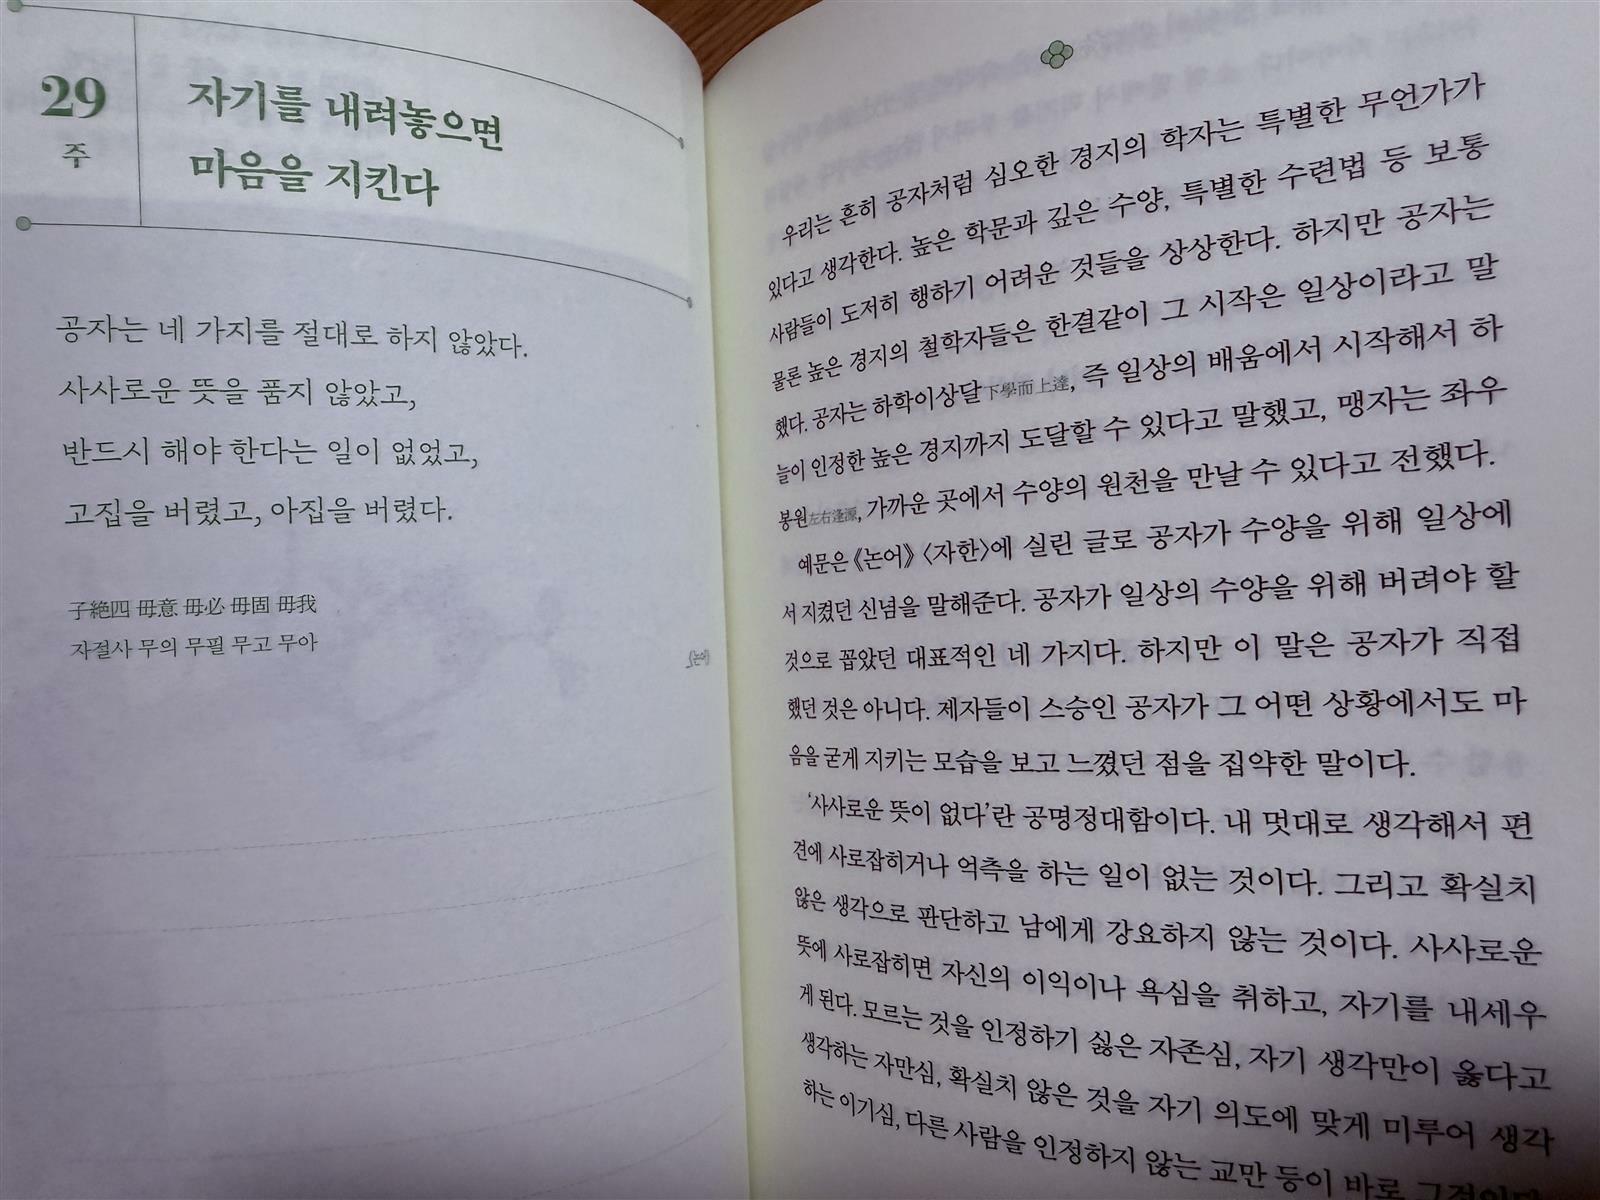 29
주
자기를 내려놓으면
마음을 지킨다
공자는 네 가지를 절대로 하지 않았다.
사사로운 뜻을 품지 않았고,
반드시 해야 한다는 일이 없었고,
고집을 버렸고, 아집을 버렸다.
子絶四 毋意 毋必 毋固 毋我
자절사 무의 무필 무고 무아
우리는 흔히 공자처럼 심오한 경지의 학자는 특별한 무언가가
있다고 생각한다. 높은 학문과 깊은 수양, 특별한 수련법 등 보통
사람들이 도저히 행하기 어려운 것들을 상상한다. 하지만 공자는
물론 높은 경지의 철학자들은 한결같이 그 시작은 일상이라고 말
했다. 공자는 하학이상달下學而上達, 즉 일상의 배움에서 시작해서 하
늘이 인정한 높은 경지까지 도달할 수 있다고 말했고, 맹자는 좌우
봉원左右逢源, 가까운 곳에서 수양의 원천을 만날 수 있다고 전했다.
예문은 《논어》 〈자한〉에 실린 글로 공자가 수양을 위해 일상에
서 지켰던 신념을 말해준다. 공자가 일상의 수양을 위해 버려야 할
것으로 꼽았던 대표적인 네 가지다. 하지만 이 말은 공자가 직접
했던 것은 아니다. 제자들이 스승인 공자가 그 어떤 상황에서도 마
음을 굳게 지키는 모습을 보고 느꼈던 점을 집약한 말이다.
'사사로운 뜻이 없다'란 공명정대함이다. 내 멋대로 생각해서 편
견에 사로잡히거나 억측을 하는 일이 없는 것이다. 그리고 확실치
않은 생각으로 판단하고 남에게 강요하지 않는 것이다. 사사로운
뜻에 사로잡히면 자신의 이익이나 욕심을 취하고, 자기를 내세우
게 된다. 모르는 것을 인정하기 싫은 자존심, 자기 생각만이 옳다고
생각하는 자만심, 확실치 않은 것을 자기 의도에 맞게 미루어 생각
하는 이기심, 다른 사람을 인정하지 않는 교만 등이 바로